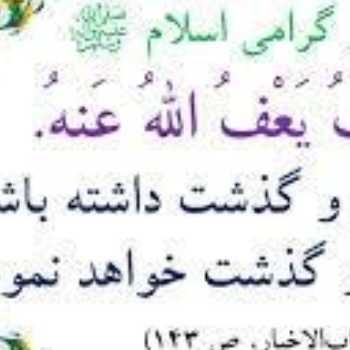 گرامی اسلام ﷺ
یَعْفُ اللهُ عَنهُ.
و گذشت داشته
گذشت خواهد
ص ۱۴۳)